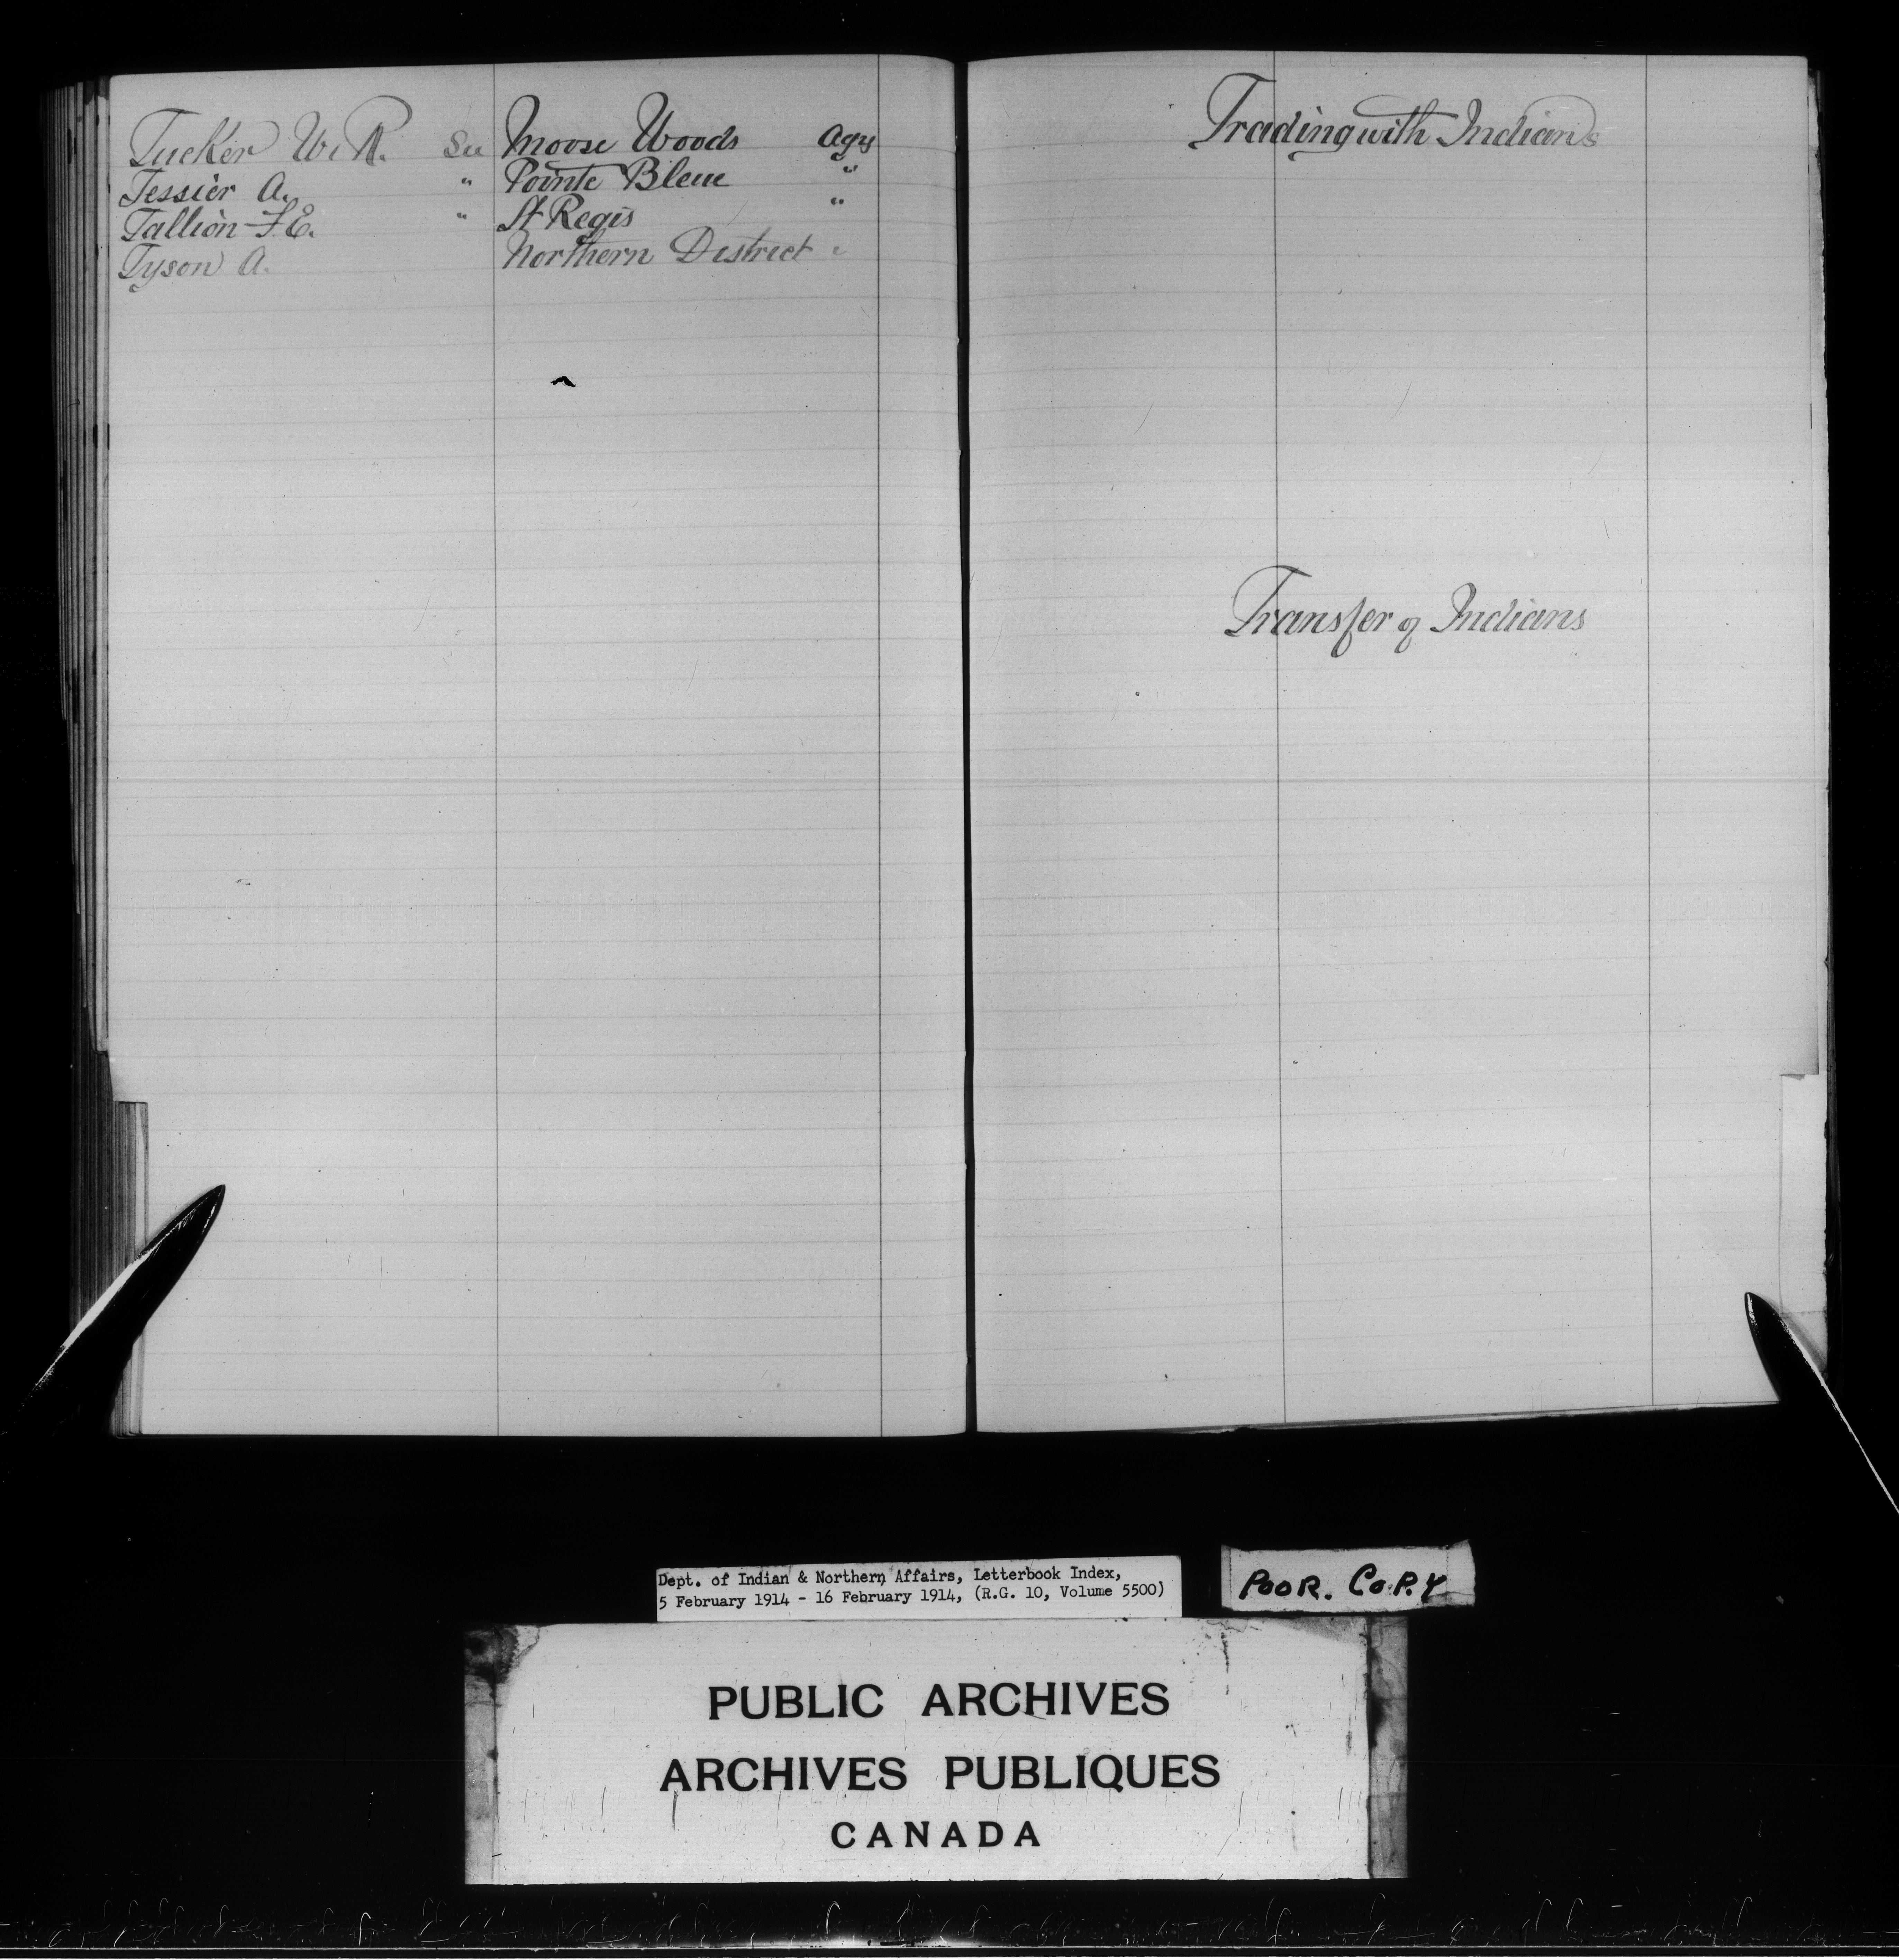 Tucker W. R. See Moose Woods Agcy
Tessier A. " Pointe Bleue "
Tallion F. E. " St Regis "
Tyson A. Northern District "
Trading with Indians
Transfer of Indians
Dept. of Indian & Northern Affairs, Letterbook Index,
5 February 1914 - 16 February 1914, (R.G. 10, Volume 5500)
POOR. COPY
PUBLIC ARCHIVES
ARCHIVES PUBLIQUES
CANADA